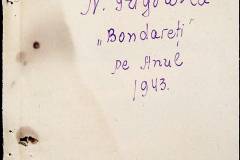 N.
„Bondareți”
pe Anul
1943.